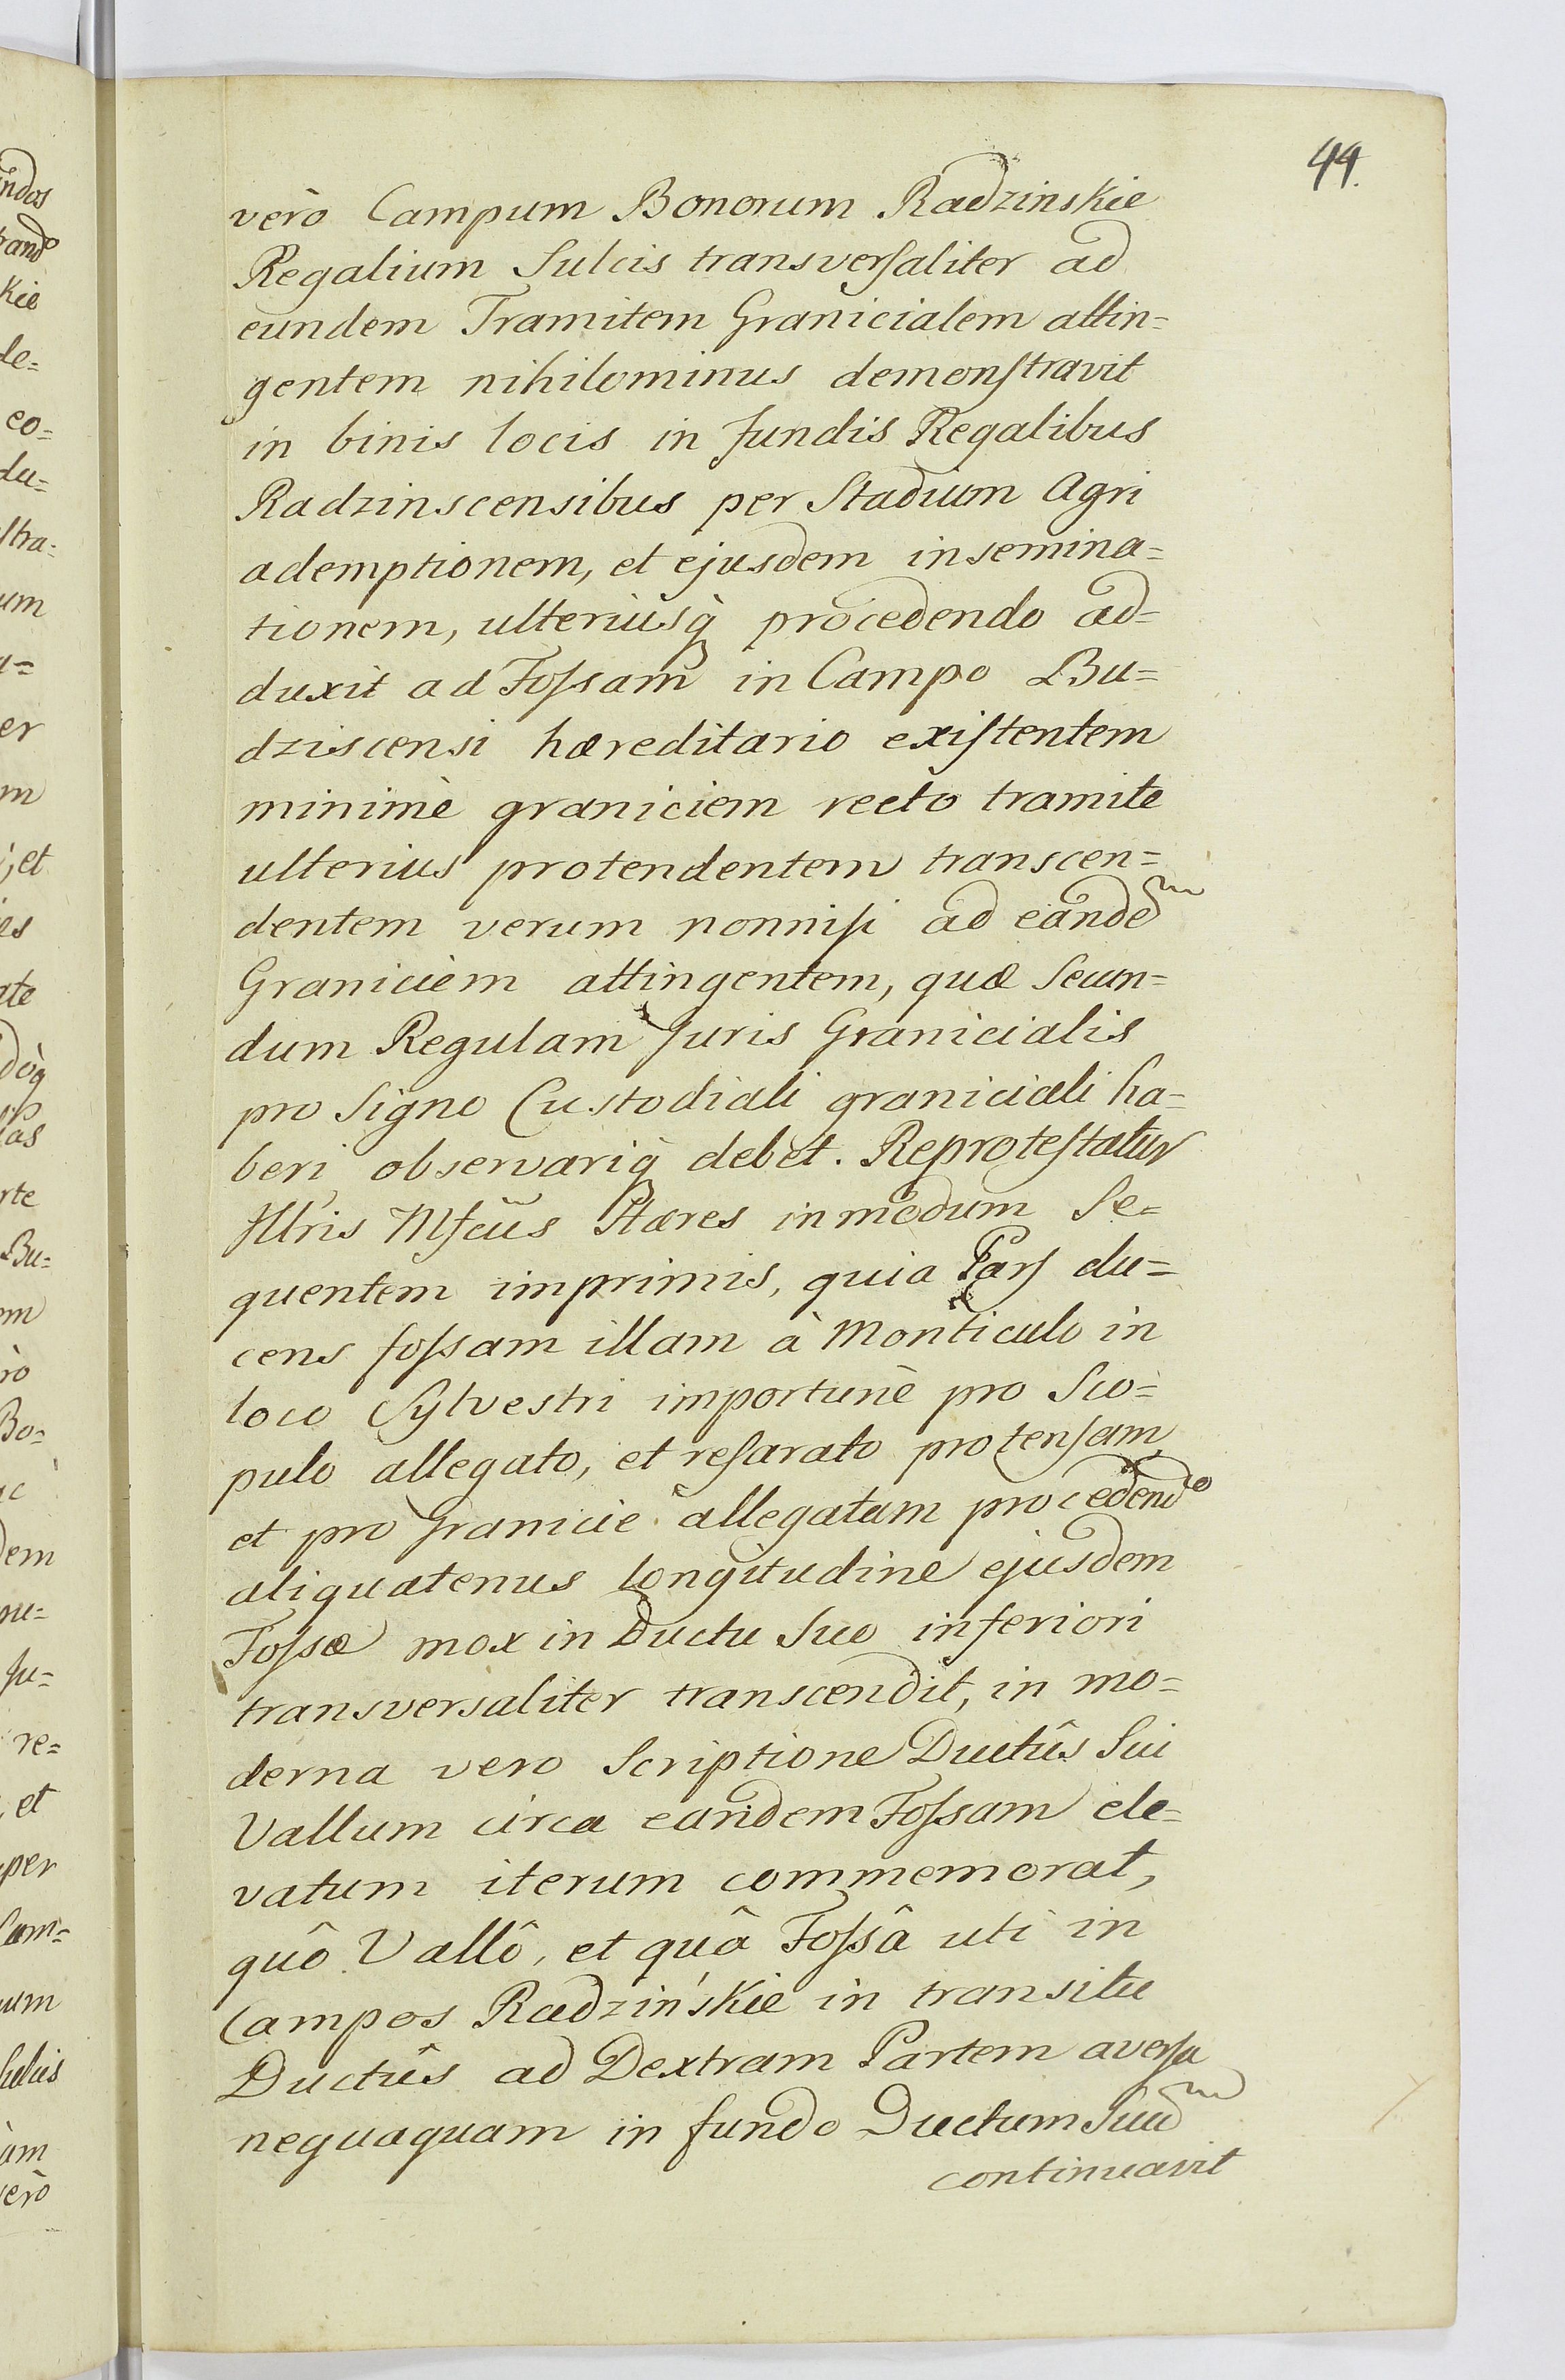 44.
vero Campum Bonorum Radzinskie
Regalium Sulcis transverſaliter ad
eundem Tramitem Granicialem attin=
gentem nihilominus demonſtravit
in binis locis in fundis Regalibus
Radzinscensibus per Stadium Agri
ademptionem, et ejusdem insemina=
tionem, ulteriusq̀ procedendo ad=
duxit ad Foſsam in Campo Bu=
dziscensi hæreditario exiſtentem
minimè graniciem recto tramite
ulterius protendentem transcen=
dentem verum nonniſi ad eandem
Graniciem attingentem, quæ Secun=
dum Regulam Juris Granicialis
pro Signo Custodiali graniciali ha=
beri observariq̀ debet. Reproteſtatur
Illris Mfcus Hæres in modum Se=
quentem imprimis, quia Parſ du=
cens foſsam illam à Monticulo in
loco Sylvestri importunè pro Sco=
pulo allegato, et reſarato protenſam,
et pro Granicie allegatam procedendo
aliquatenus longitudine ejusdem
Foſsæ mox in Ductu Suo inferiori
transversaliter transcendit, in mo=
derna vero Scriptione Ductûs Sui
Vallum circa eandem Foſsam ele=
vatum iterum commemorat,
quô Vallô, et quâ Foſsâ uti in
Campos Radzińskie in transitu
Ductûs ad Dextram Partem averſa
nequaquam in fundo Ductum Suum
continuavit